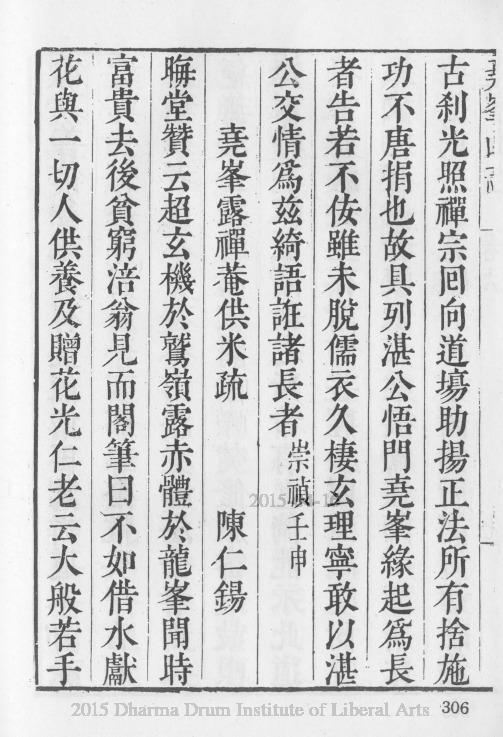 古刹光照禪宗囘向道場助揚正法所有捨施
功不唐捐也故具列湛公悟門堯峯緣起爲長
者告若不佞雖未脫儒衣久棲玄理寧敢以湛
公交情爲兹綺語誑諸長者崇禎壬申
堯峯露禪菴供米疏　陳仁錫
晦堂贊云超玄機於鷲嶺露赤體於龍峯聞時
富貴去後貧窮涪翁見而閣筆曰不如借水獻
花與一切人供養及贈花光仁老云大般若手
306
2015 Dharma Drum Institute of Liberal Arts